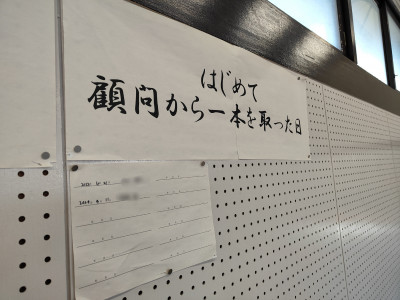 はじめて
顧問から一本を取った日